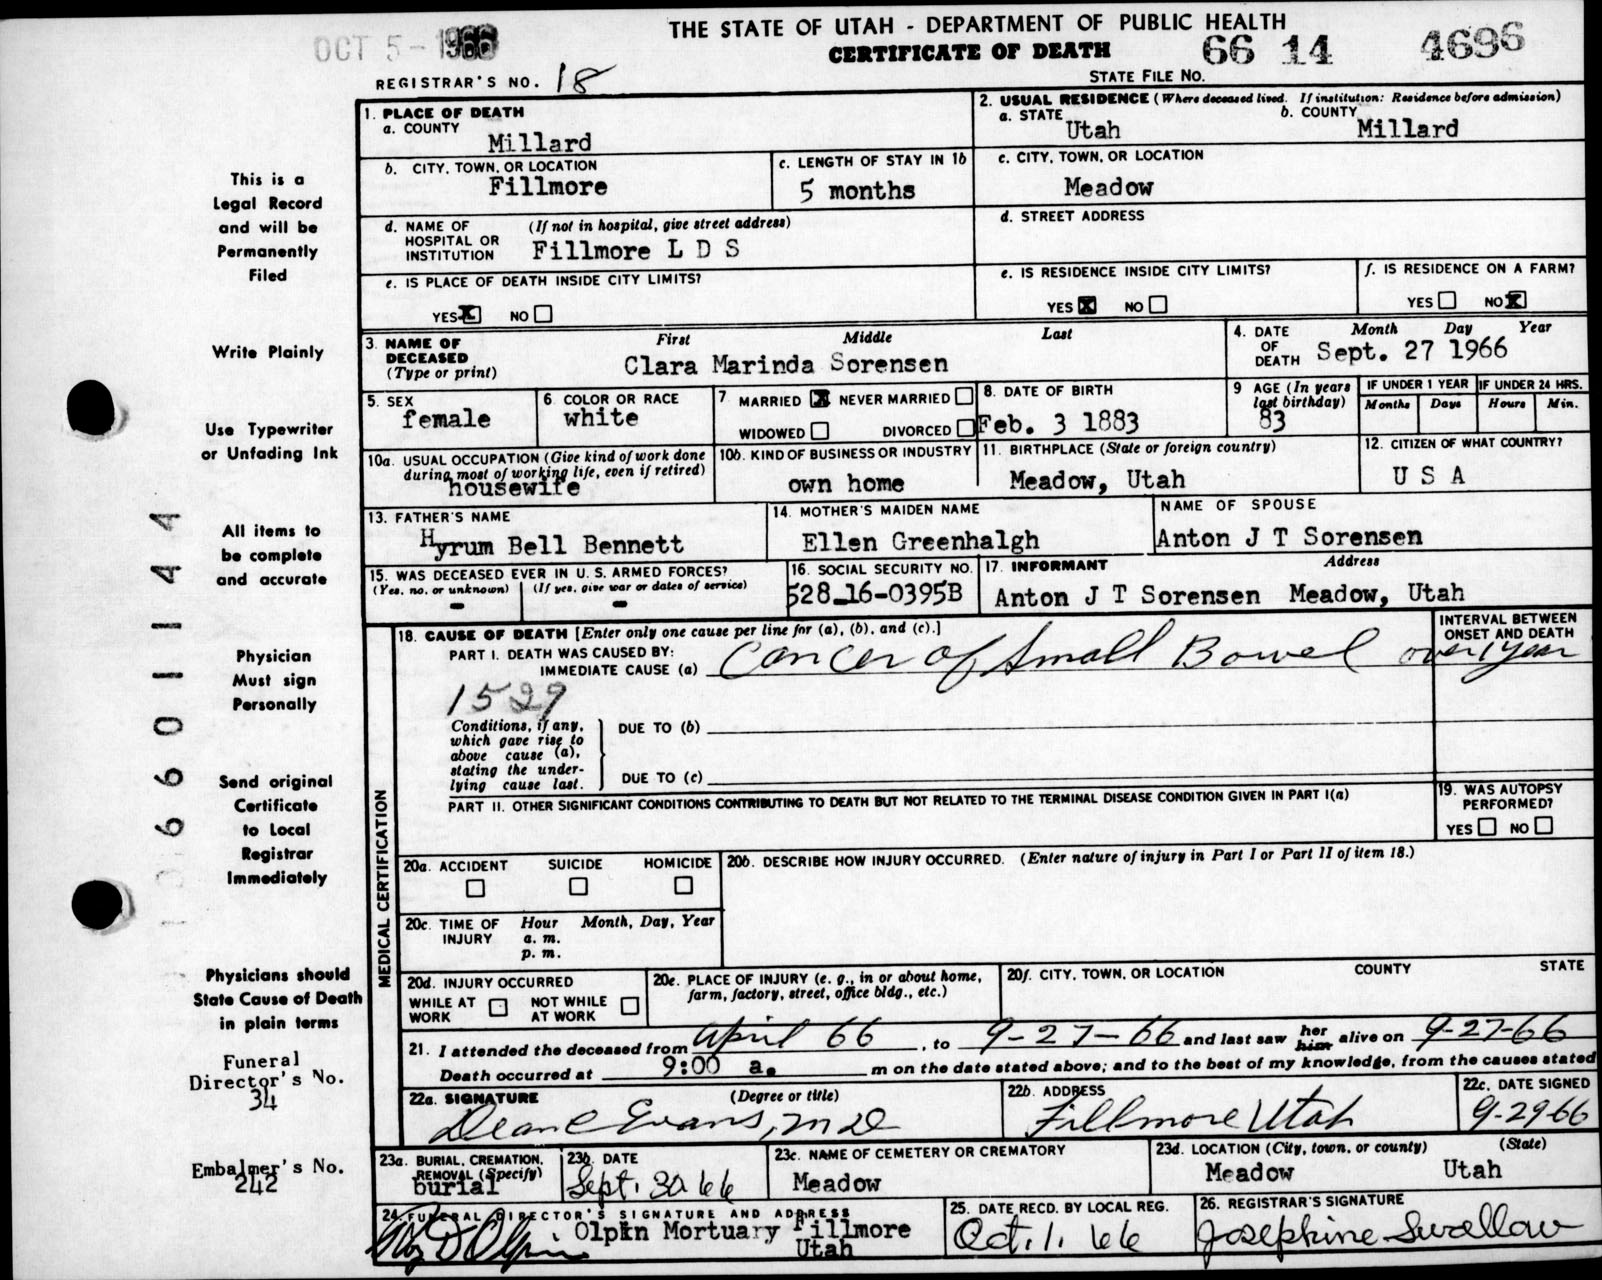 OCT 5 - 1966
THE STATE OF UTAH - DEPARTMENT OF PUBLIC HEALTH
CERTIFICATE OF DEATH
66 14 4696
REGISTRAR'S NO. 18
STATE FILE NO.
1. PLACE OF DEATH
a. COUNTY
Millard
2. USUAL RESIDENCE (Where deceased lived. If institution: Residence before admission)
a. STATE
Utah
b. COUNTY
Millard
b. CITY, TOWN, OR LOCATION
Fillmore
c. LENGTH OF STAY IN 1b
5 months
c. CITY, TOWN, OR LOCATION
Meadow
d. NAME OF HOSPITAL OR INSTITUTION
(If not in hospital, give street address)
Fillmore L D S
d. STREET ADDRESS
e. IS PLACE OF DEATH INSIDE CITY LIMITS?
YES X NO
e. IS RESIDENCE INSIDE CITY LIMITS?
YES X NO
f. IS RESIDENCE ON A FARM?
YES NO X
3. NAME OF DECEASED
(Type or print)
First Middle Last
Clara Marinda Sorensen
4. DATE OF DEATH
Month Day Year
Sept. 27 1966
5. SEX
female
6. COLOR OR RACE
white
7. MARRIED X NEVER MARRIED
WIDOWED DIVORCED
8. DATE OF BIRTH
Feb. 3 1883
9 AGE (In years last birthday)
83
IF UNDER 1 YEAR
Months Days
IF UNDER 24 HRS.
Hours Min.
10a. USUAL OCCUPATION (Give kind of work done during most of working life, even if retired)
housewife
10b. KIND OF BUSINESS OR INDUSTRY
own home
11. BIRTHPLACE (State or foreign country)
Meadow, Utah
12. CITIZEN OF WHAT COUNTRY?
U S A
13. FATHER'S NAME
Hyrum Bell Bennett
14. MOTHER'S MAIDEN NAME
Ellen Greenhalgh
NAME OF SPOUSE
Anton J T Sorensen
15. WAS DECEASED EVER IN U. S. ARMED FORCES?
(Yes, no, or unknown) (If yes, give war or dates of service)
- -
16. SOCIAL SECURITY NO.
528-16-0395B
17. INFORMANT Address
Anton J T Sorensen Meadow, Utah
MEDICAL CERTIFICATION
18. CAUSE OF DEATH [Enter only one cause per line for (a), (b), and (c).]
PART I. DEATH WAS CAUSED BY:
IMMEDIATE CAUSE (a) Cancer of Small Bowel
INTERVAL BETWEEN ONSET AND DEATH
over 1 year
1529
Conditions, if any, which gave rise to above cause (a), stating the underlying cause last.
DUE TO (b)
DUE TO (c)
PART II. OTHER SIGNIFICANT CONDITIONS CONTRIBUTING TO DEATH BUT NOT RELATED TO THE TERMINAL DISEASE CONDITION GIVEN IN PART I(a)
19. WAS AUTOPSY PERFORMED?
YES NO
20a. ACCIDENT SUICIDE HOMICIDE
20b. DESCRIBE HOW INJURY OCCURRED. (Enter nature of injury in Part I or Part II of item 18.)
20c. TIME OF INJURY
Hour Month, Day, Year
a. m.
p. m.
20d. INJURY OCCURRED
WHILE AT WORK NOT WHILE AT WORK
20e. PLACE OF INJURY (e. g., in or about home, farm, factory, street, office bldg., etc.)
20f. CITY, TOWN, OR LOCATION COUNTY STATE
21. I attended the deceased from April 66, to 9-27-66 and last saw her him alive on 9-27-66
Death occurred at 9:00 a. m on the date stated above; and to the best of my knowledge, from the causes stated
22a. SIGNATURE (Degree or title)
Dean C Evans, M D
22b. ADDRESS
Fillmore Utah
22c. DATE SIGNED
9-29-66
23a. BURIAL, CREMATION, REMOVAL (Specify)
burial
23b. DATE
Sept. 30 66
23c. NAME OF CEMETERY OR CREMATORY
Meadow
23d. LOCATION (City, town, or county) (State)
Meadow Utah
24. FUNERAL DIRECTOR'S SIGNATURE AND ADDRESS
Olpin Mortuary Fillmore Utah
25. DATE RECD. BY LOCAL REG.
Oct. 1. 66
26. REGISTRAR'S SIGNATURE
Josephine Swallow
This is a
Legal Record
and will be
Permanently
Filed
Write Plainly
Use Typewriter
or Unfading Ink
All items to
be complete
and accurate
Physician
Must sign
Personally
Send original
Certificate
to Local
Registrar
Immediately
Physicians should
State Cause of Death
in plain terms
Funeral
Director's No.
34
Embalmer's No.
242
6601144